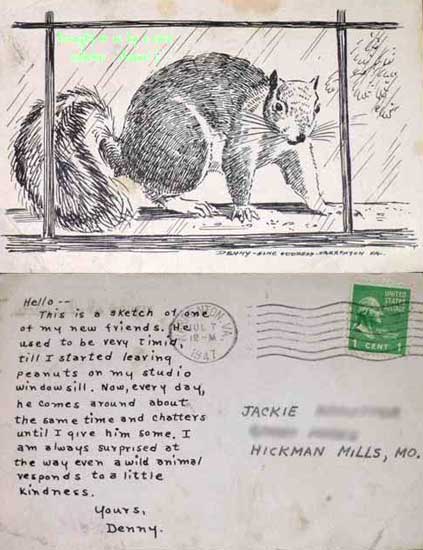 DENNY - SAME ADDRESS - WARRENTON VA.
Hello --
This is a sketch of one
of my new friends. He
used to be very timid,
till I started leaving
peanuts on my studio
windowsill. Now, every day,
he comes around about
the same time and chatters
until I give him some. I
am always surprised at
the way even a wild animal
responds to a little
kindness.
Yours,
Denny.
NTON, VA.
JUL 7
12-M
1947
UNITED
STATES
POSTAGE
1 CENT 1
JACKIE
HICKMAN MILLS, MO.